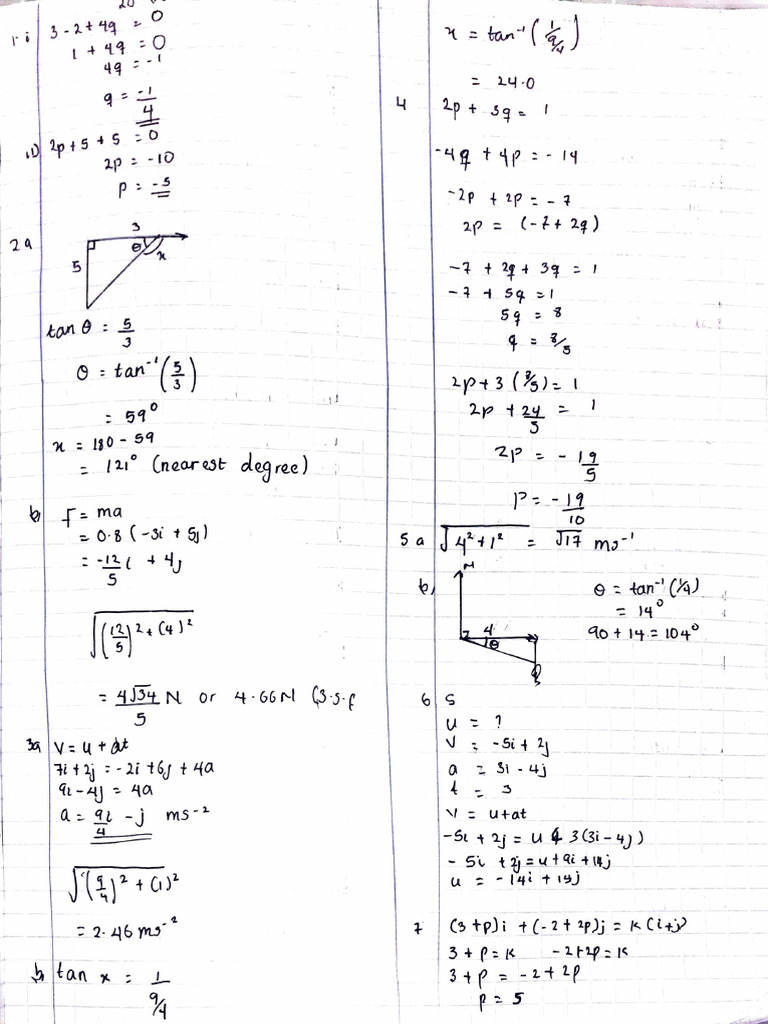 20
1 i 3 - 2 + 4q = 0
1 + 4q = 0
4q = -1
q = -1/4
ii) 2p + 5 + 5 = 0
2p = -10
p = -5
2a
3
θ x
5
tan θ = 5/3
θ = tan⁻¹(5/3)
= 59°
x = 180 - 59
= 121° (nearest degree)
b) F = ma
= 0.8 (-3i + 5j)
= -12/5 i + 4j
√((12/5)² + (4)²)
= 4√34/5 N or 4.66N (3.s.f
3a V = u + at
7i + 2j = -2i + 6j + 4a
9i - 4j = 4a
a = 9i/4 - j ms⁻²
√((9/4)² + (1)²
= 2.46 ms⁻²
b, tan x = 1/(9/4)
x = tan⁻¹(1/(9/4))
= 24.0
4 2p + 3q = 1
-4q + 4p = -14
-2p + 2p = -7
2p = (-7 + 2q)
-7 + 2q + 3q = 1
-7 + 5q = 1
5q = 8
q = 8/5
2p + 3(8/5) = 1
2p + 24/5 = 1
2p = -19/5
P = -19/10
5 a √(4² + 1²) = √17 ms⁻¹
b, N
4
θ
θ = tan⁻¹(1/4)
= 14°
90 + 14 = 104°
6 S
u = ?
V = -5i + 2j
a = 3i - 4j
t = 3
v = u + at
-5i + 2j = u + 3(3i - 4j)
-5i + 2j = u + 9i + 14j
u = -14i + 14j
7 (3 + p)i + (-2 + 2p)j = k(i+j)
3 + p = k -2+2p = k
3 + p = -2 + 2p
p = 5